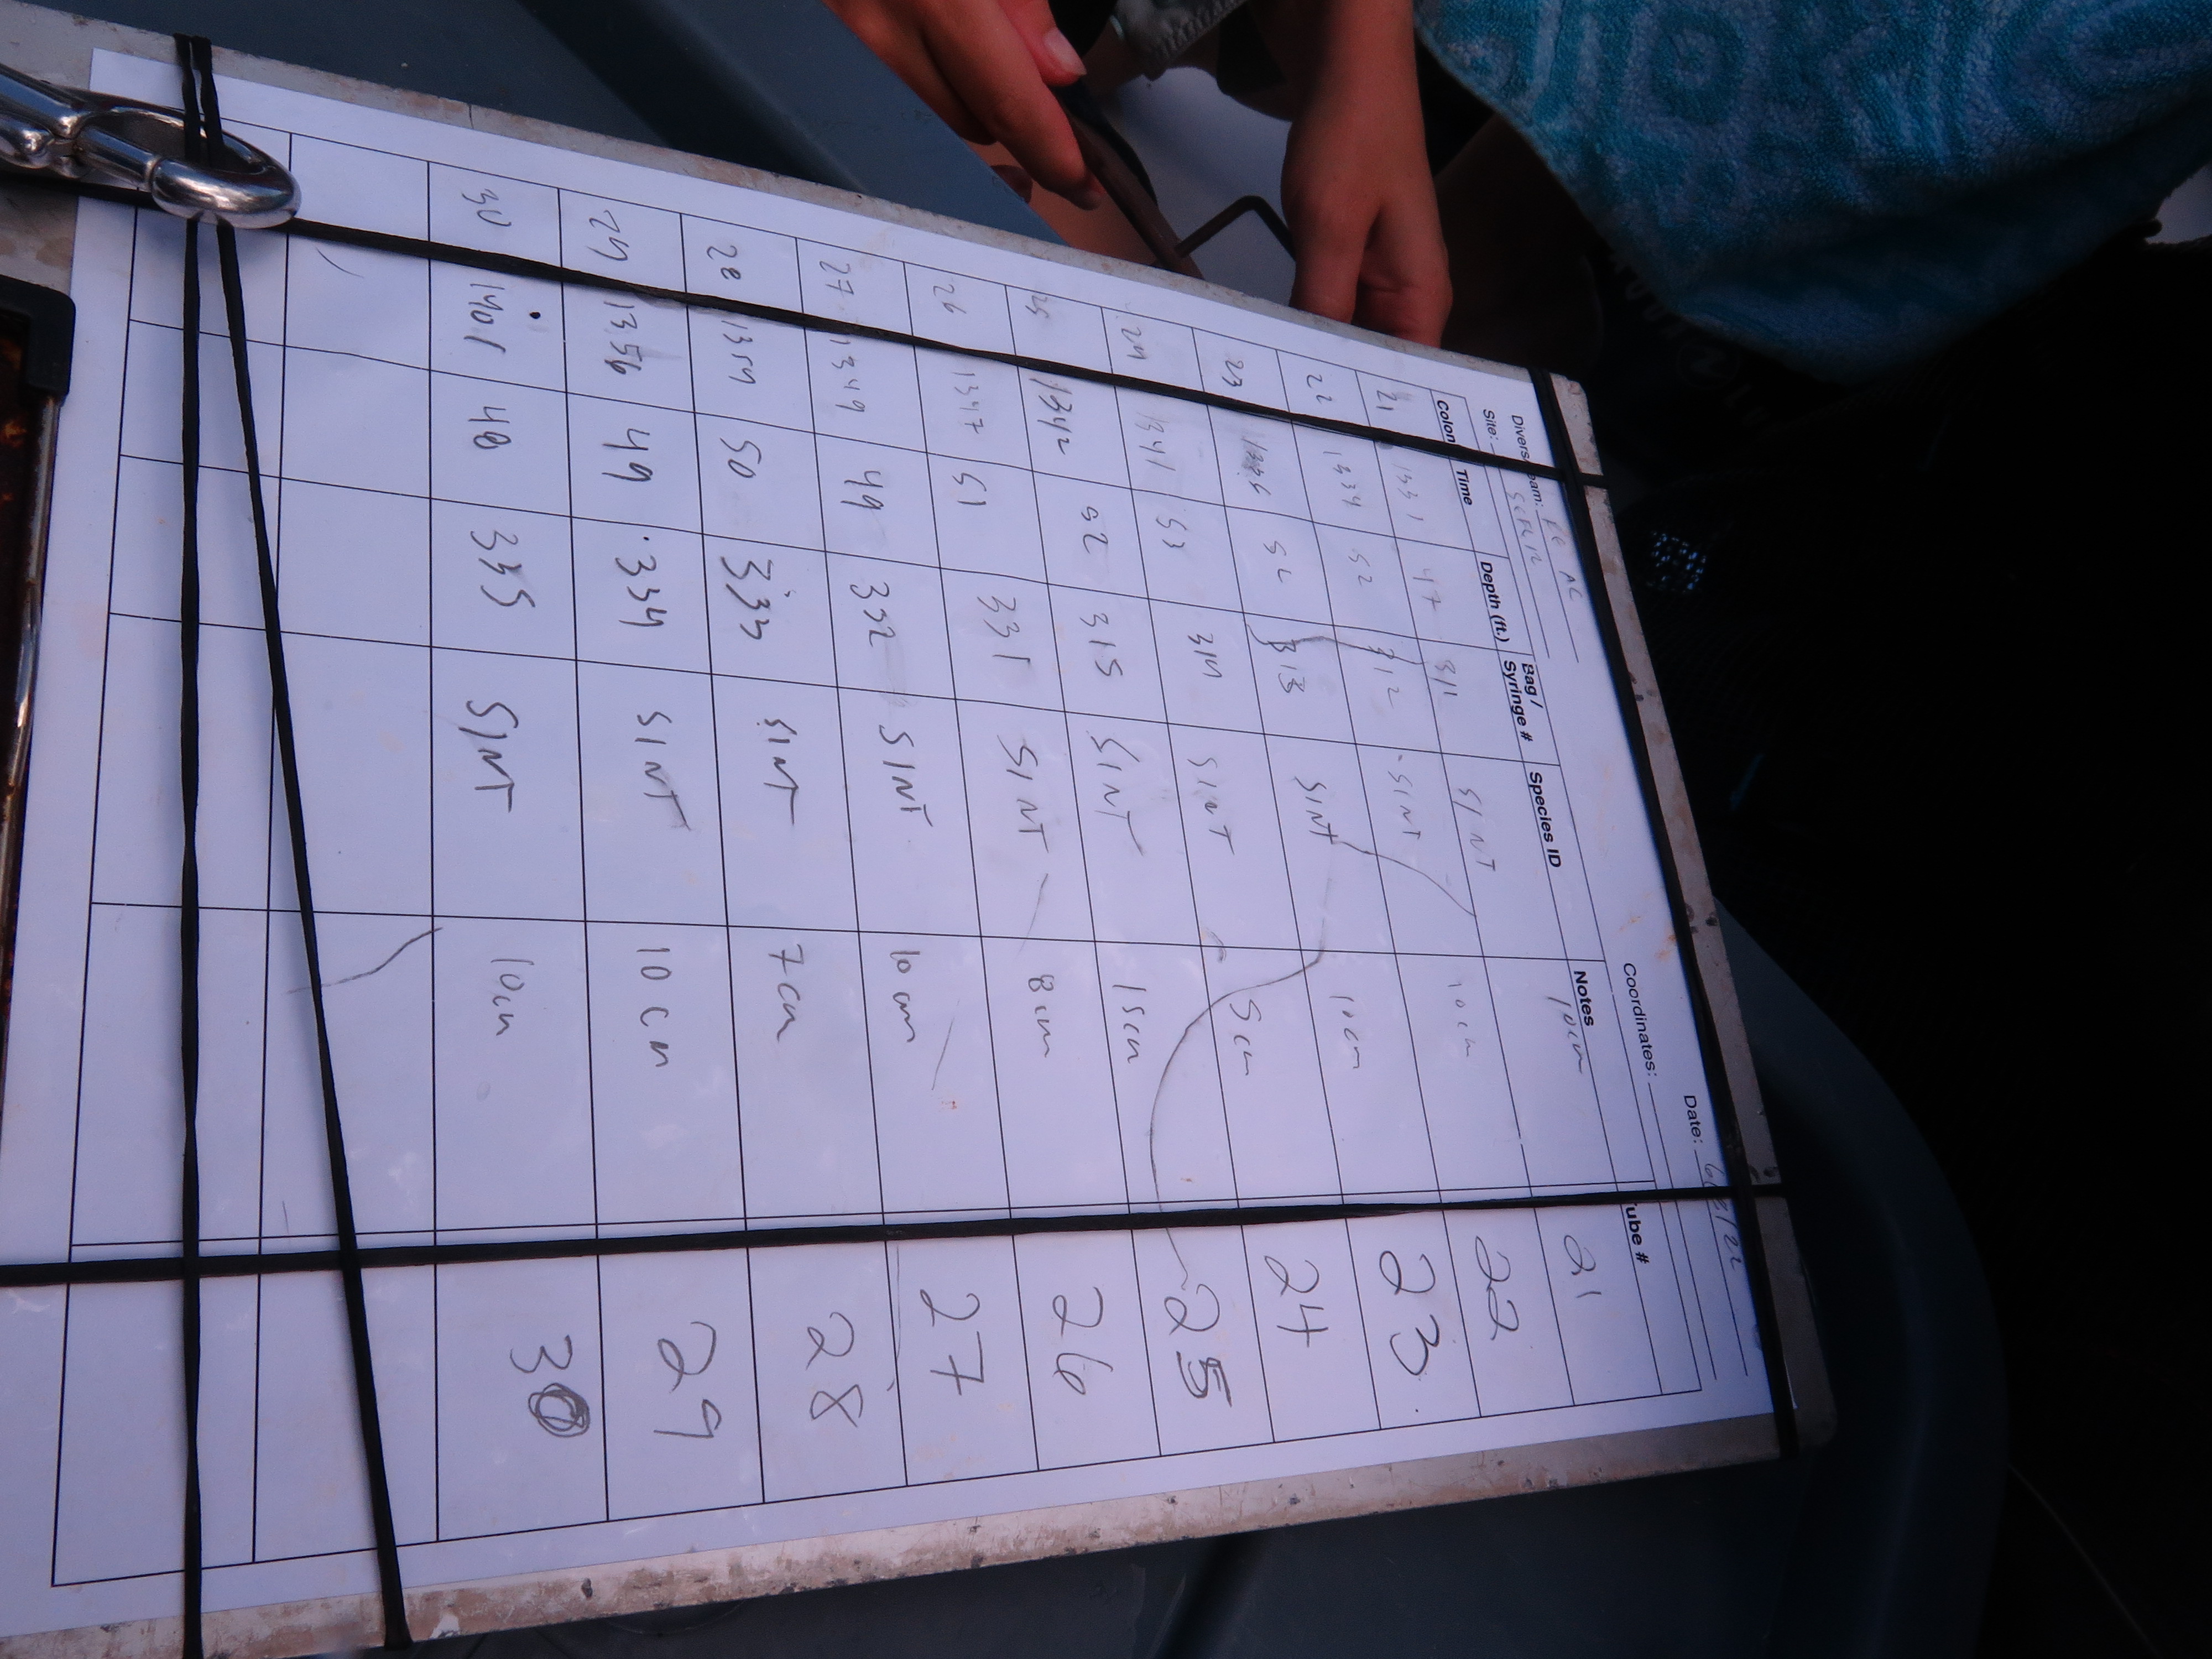 Date: 6/2/22
Coordinates:
Divers/Team: AC
Site: SEFL12
Colon Time Depth (ft.) Bag / Syringe # Species ID Notes Tube #
21 1331 47 311 SINT 10cm 21
22 1334 52 312 SINT 10cm 22
23 1336 52 313 SINT 10cm 23
24 1341 53 314 SINT 5cm 24
25 1342 52 315 SINT 15cm 25
26 1347 51 331 SINT 8cm 26
27 1349 49 332 SINT 10cm 27
28 1354 50 333 SINT 7cm 28
29 1356 49 334 SINT 10cm 29
30 1401 48 335 SINT 10cm 30